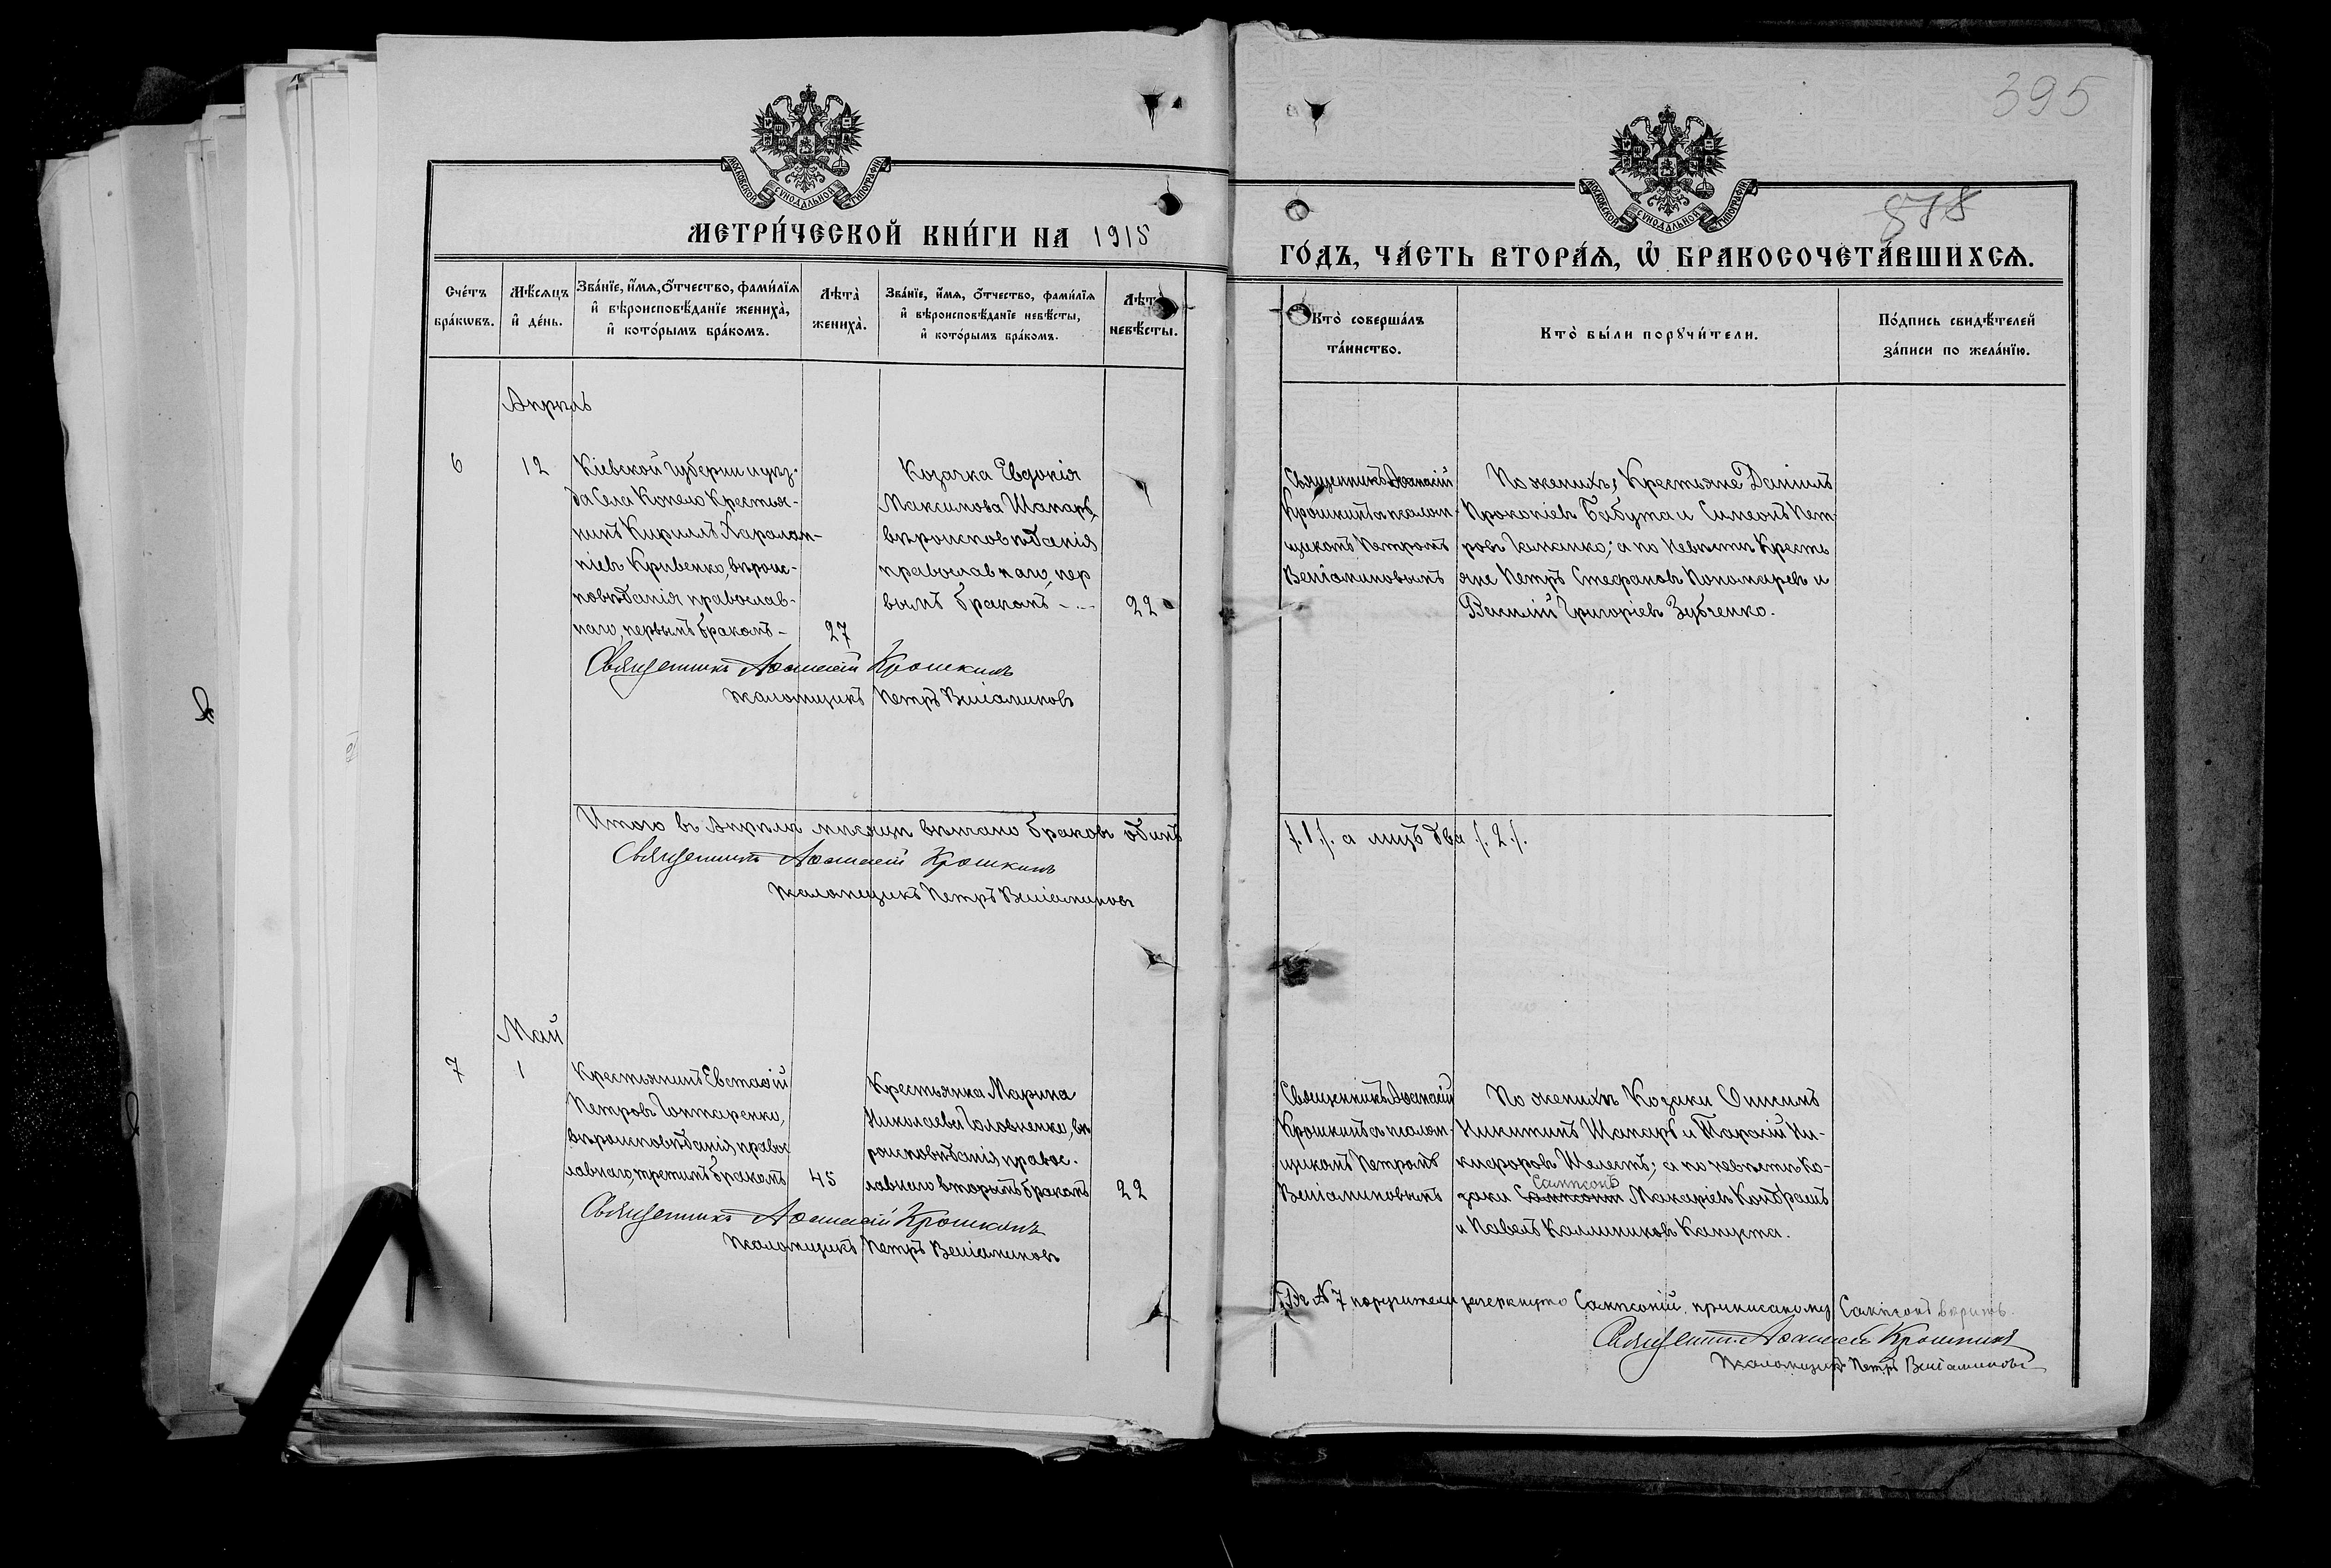 МОСКОВСКОЙ СѴНОДАЛЬНОЙ ТИПОГРАФІИ
МЕТРИ́ЧЕСКОЙ КНИ́ГИ НА 1915
Сче́тъ бра́кѡвъ.
Мѣ́сяцъ и҆ де́нь.
Зва́нїе, и҆́мѧ, ѻ҆́тчество, фами́лїѧ
и҆ вѣроисповѣ́данїе жениха̀,
и҆ кото́рымъ бра́комъ.
Лѣта̀ жениха̀.
Зва́нїе, и҆́мѧ, ѻ҆́тчество, фами́лїѧ
и҆ вѣроисповѣ́данїе невѣ́сты,
и҆ кото́рымъ бра́комъ.
Лѣта̀ невѣ́сты.
Апрѣль
6
12
Кіевской губерніи и уѣз-
да села Копело Крестья-
нинъ Кириллъ Харалам-
піевъ Кривенко, вѣроис-
повѣданія православ-
наго, первымъ бракомъ -
27
Козачка Евдокія
Максимова Шапаръ
вѣроисповѣданія
православнаго, пер
вымъ бракомъ - . -
22
Священникъ Аѳанасій Крошкинъ
Псаломщикъ Петръ Веніаминовъ
Итого въ Апрѣлѣ мѣсяцѣ вѣнчано браковъ одинъ
Священникъ Аѳанасій Крошкинъ
Псаломщикъ Петръ Веніаминовъ
Май
7
1
Крестьянинъ Евстаѳій
Петровъ Гонтаренко,
вѣроисповѣданія правос
лавнаго, третимъ бракомъ
45
Крестьянка Марина
Николаева Головненко, вѣ
роисповѣданія правос-
лавнаго вторымъ бракомъ
22
Священникъ Аѳанасій Крошкинъ
Псаломщикъ Петръ Веніаминовъ
395
878
МОСКОВСКОЙ СѴНОДАЛЬНОЙ ТИПОГРАФІИ
ГО́ДЪ, ЧА́СТЬ ВТОРА́Ѧ, Ѡ҆ БРАКОСОЧЕТА́ВШИХСѦ.
Кто̀ соверша́лъ
та́инство.
Кто̀ бы́ли порꙋчи́тели.
По́дпись свидѣ́телей
за́писи по жела́нїю.
Священникъ Аѳанасій
Крошкинъ съ псалом-
щикомъ Петромъ
Веніаминовымъ
По женихѣ; Крестьяне Даніилъ
Прокопіевъ Бабута и Симеонъ Пет
ровъ Гаманко; а по невѣстѣ Кресть
яне Петръ Стефановъ Пономаревъ и
Василій Григоріевъ Зубченко.
/.1./. а лицъ два /.2./.
Священникъ Аѳанасій
Крошкинъ съ псалом-
щикомъ Петромъ
Веніаминовымъ
По женихѣ Козаки Онисимъ
Никитинъ Шапаръ и Тарасій Ни-
кифоровъ Шелестъ; а по невѣстѣ Ко-
Сампсонъ
заки Сампсоній Макаріевъ Кондрашъ
и Павелъ Каллиниковъ Капуста.
Въ № 7 поручители зачеркнуто Сампсоній, приписаному Сампсонъ вѣрить.
Священникъ Аѳанасій Крошкинъ
Псаломщикъ Петръ Веніаминовъ